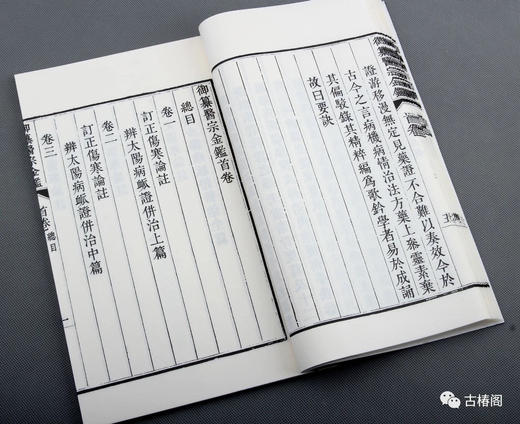 證游移漫無定見藥證不合難以奏效今於
古今之言病機病情治法方藥上參靈素棄
其偏駁錄其精粹編爲歌訣學者易於成誦
故曰要訣
御纂醫宗金鑑首卷
總目
卷一
訂正傷寒論註
辨太陽病脈證併治上篇
卷二
訂正傷寒論註
辨太陽病脈證併治中篇
卷三
御纂醫宗金鑑 首卷 總目
古椿阁